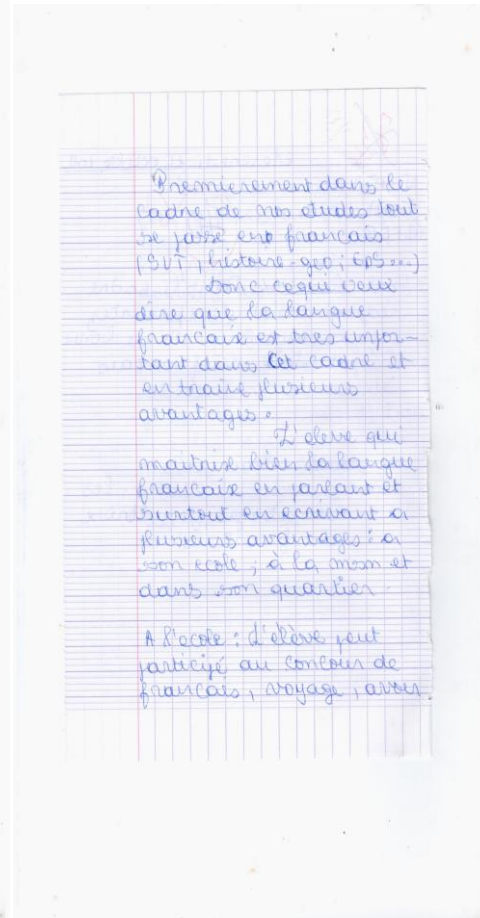 Premierement dans le
cadre de nos etudes tout
se passe en français
(SVT, histoire-geo; EPS...)
Donc ce qui veux
dire que la langue
francaise est tres impor-
tant dans cet cadre et
entraine plusieurs
avantages.
L'eleve qui
maitrise bien la langue
francaise en parlant et
surtout en ecrivant a
plusieurs avantages: a
son ecole, à la mson et
dans son quartier.
A l'ecole: L'elève peut
participé au concour de
français, voyage, avoir